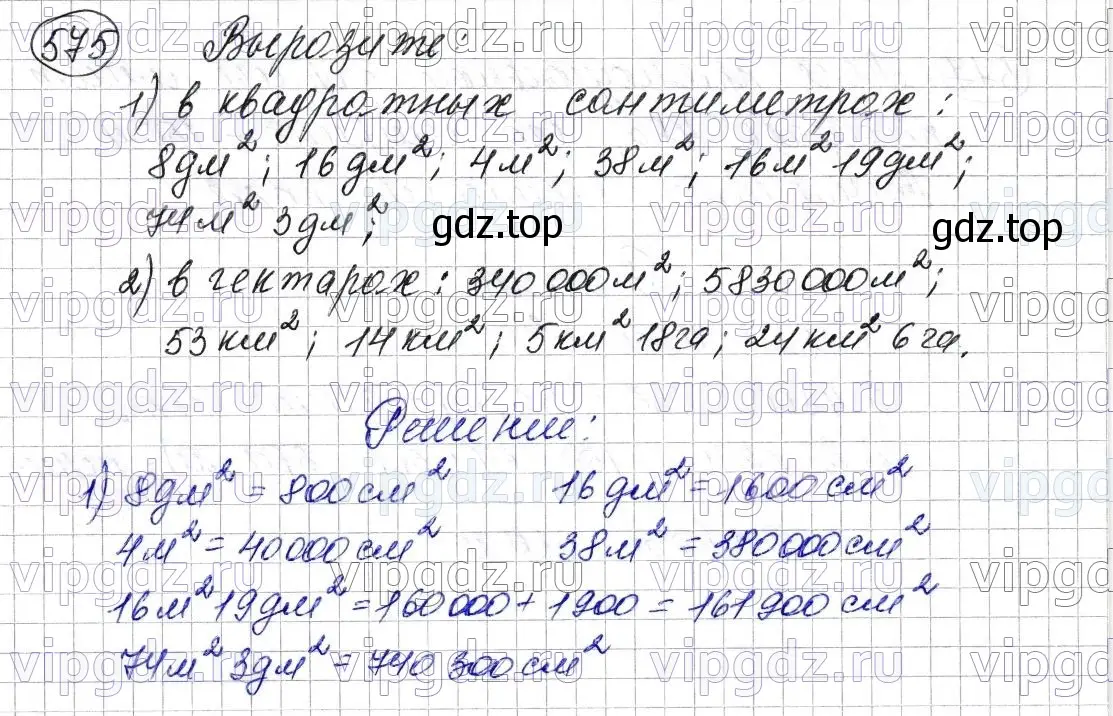 575 Выразите:
1) в квадратных сантиметрах:
8дм²; 16 дм²; 4м²; 38м²; 16м² 19дм²;
74м² 3 дм²;
gdz.top
gdz.top
2) в гектарах: 340 000м²; 5830 000м²;
53 км²; 14 км²; 5км² 18га; 24 км² 6 га.
Решение:
1) 8дм² = 800 см² 16 дм² = 1600 см²
4м² = 40 000 см² 38м² = 380 000 см²
16м² 19дм² = 160 000 + 1900 = 161 900 см²
74м² 3дм² = 740 300 см²
vipgdz.ru